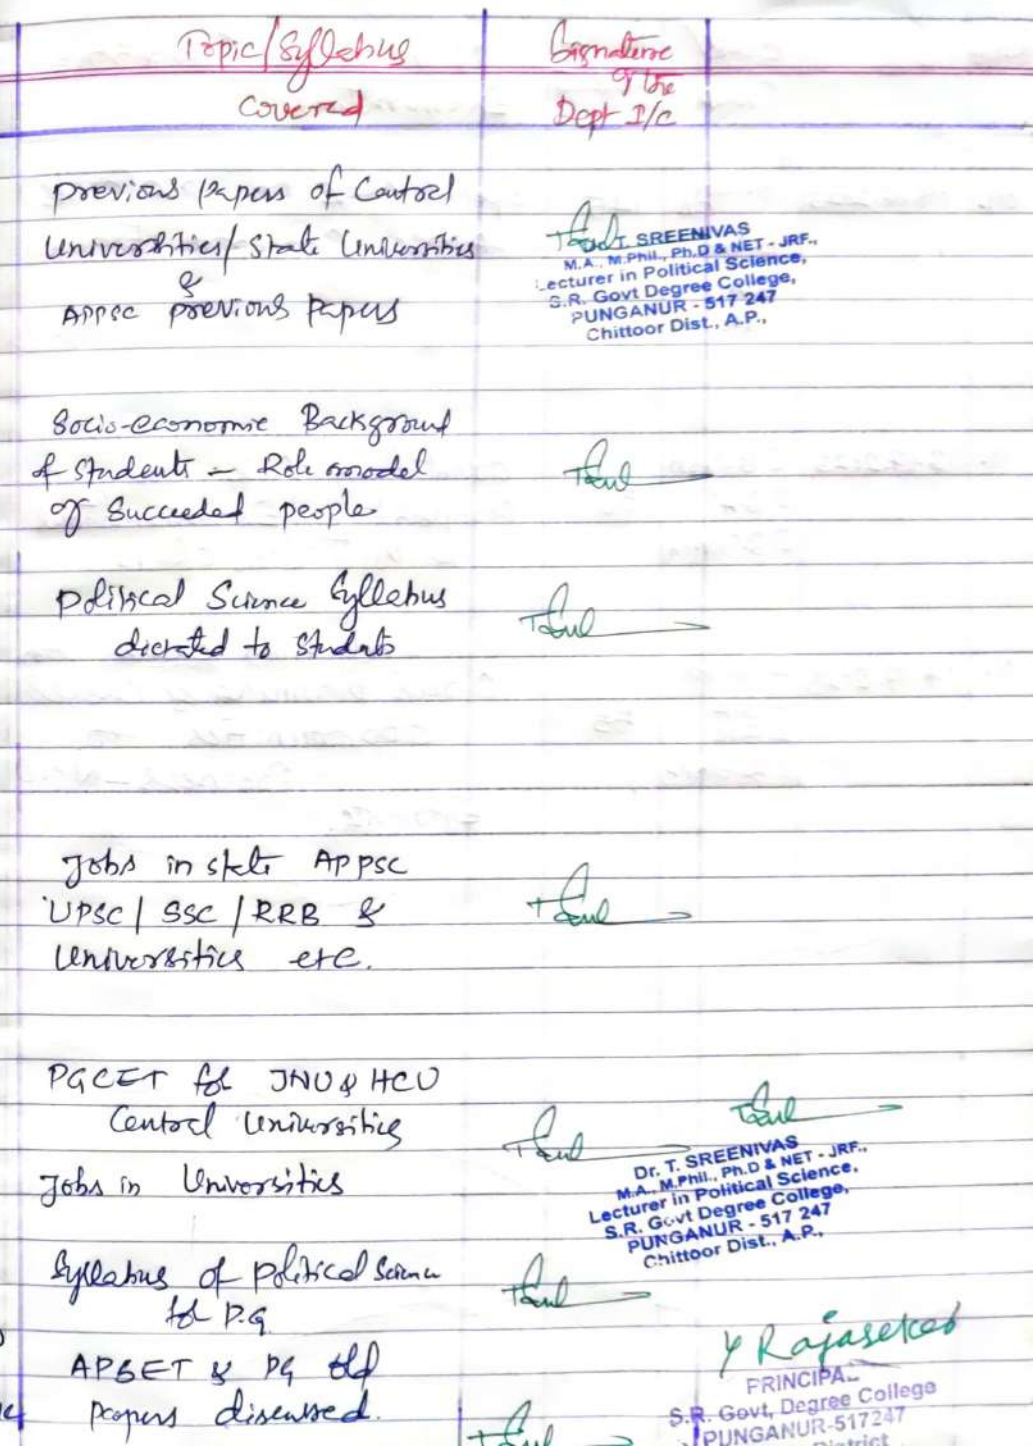 Topic/Syllebus
Signature
of the
Covered
Dept I/c
previous papers of Central
Universities/ State Universities
&
APPSC previous papers
T. SREENIVAS
M.A., M.Phil., Ph.D & NET - JRF.,
Lecturer in Political Science,
S.R. Govt Degree College,
PUNGANUR - 517 247
Chittoor Dist., A.P.,
Socio-economic Background
of students - Role model
of Succeeded people
political Science Syllebus
dictated to students
Jobs in state APPSC
UPSC/ SSC /RRB &
Universities etc.
PGCET for JNU & HCU
Central Universities
Jobs in Universities
Dr. T. SREENIVAS
M.A., M.Phil., Ph.D & NET - JRF.,
Lecturer in Political Science,
S.R. Govt Degree College,
PUNGANUR - 517 247
Chittoor Dist., A.P.,
Syllabus of political Science
for P.G
APSET & PG old
papers discussed.
Y Rajasekar
PRINCIPAL
S.R. Govt, Degree College
PUNGANUR-517247
District